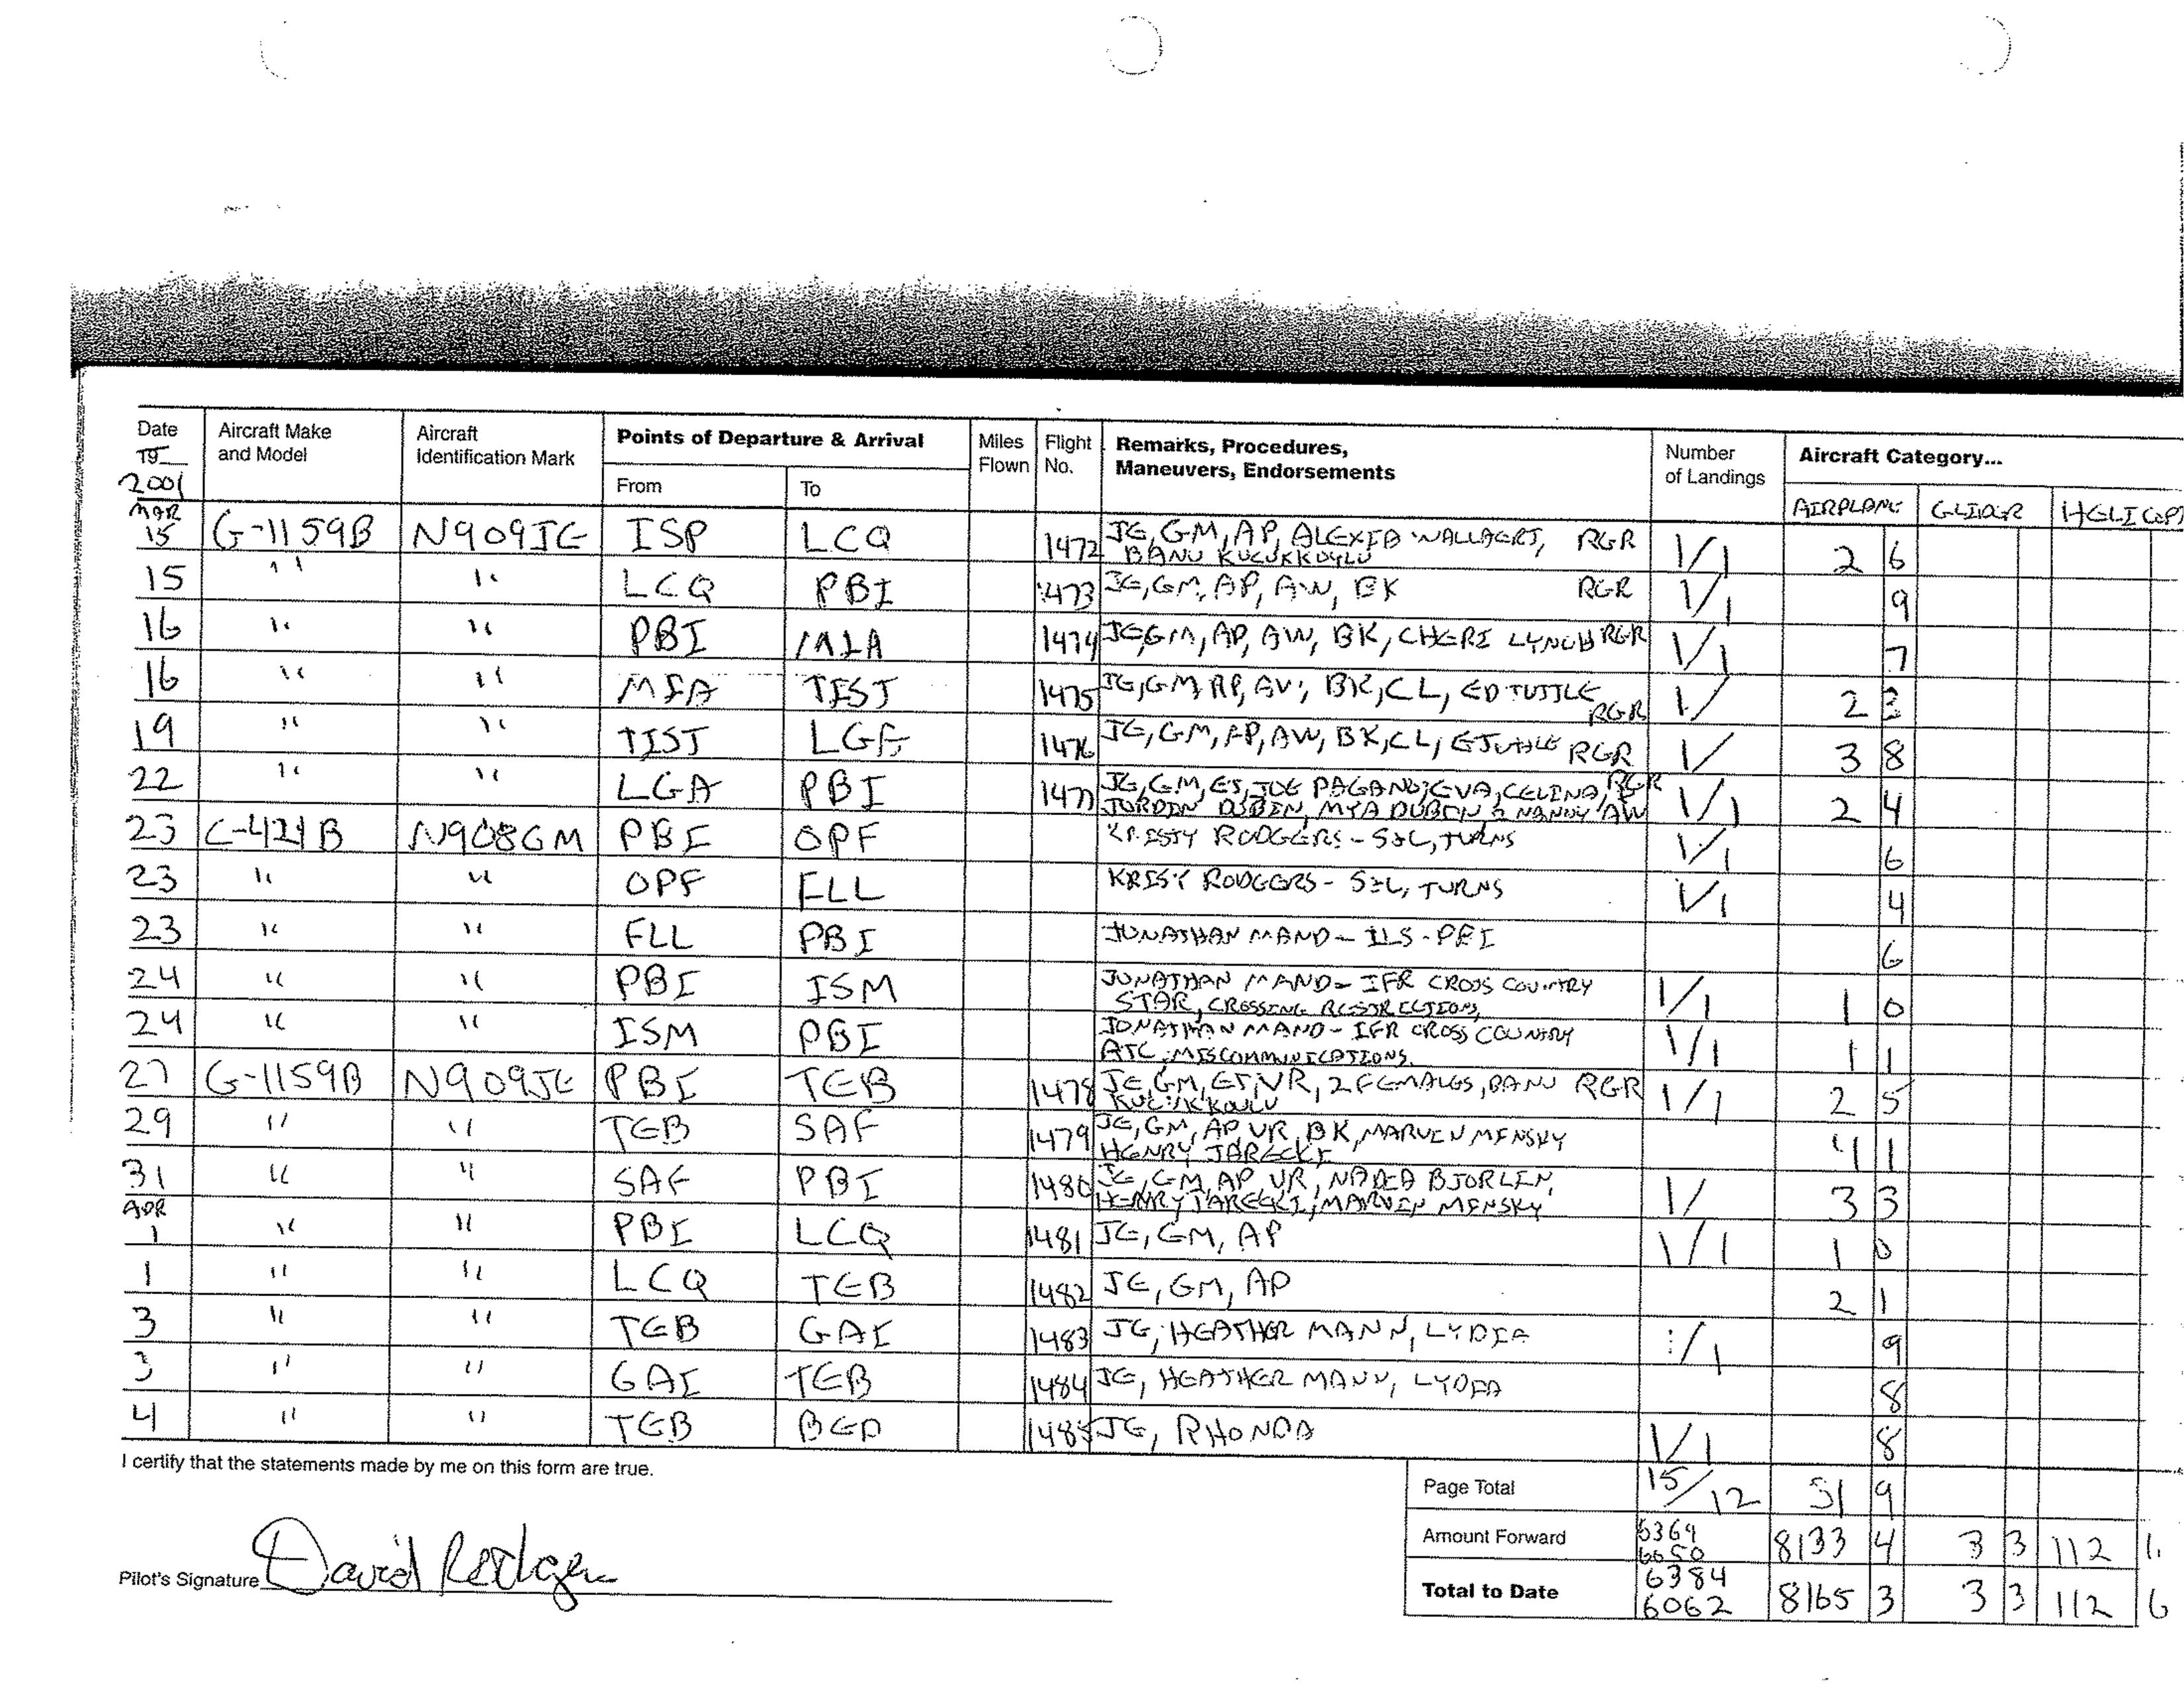 Date Aircraft Make and Model Aircraft Identification Mark Points of Departure & Arrival Miles Flown Flight No. Remarks, Procedures, Maneuvers, Endorsements Number of Landings Aircraft Category...
2001 From To AIRPLANE GLIDER HELICOPT
MAR
15 G-1159B N909JE ISP LCQ 1472 JE, GM, AP, ALEXIA WALLAERT, RGR 1/1 2 6
BANU KUCUKKOYLU
15 " " LCQ PBI 1473 JE, GM, AP, AW, BK RGR 1/1 9
16 " " PBI MIA 1474 JE, GM, AP, AW, BK, CHERI LYNCH RGR 1/1 7
16 " " MIA TIST 1475 JE, GM, AP, AW, BK, CL, ED TUTTLE RGR 1/ 2 3
19 " " TIST LGA 1476 JE, GM, AP, AW, BK, CL, E TUTTLE RGR 1/ 3 8
22 " " LGA PBI 1477 JE, GM, ET, JOE PAGANO, EVA, CELINA, RGR 1/1 2 4
JORDAN DUBIN, MYA DUBIN & NANNY AW
23 C-421B N908GM PBI OPF KRISTY RODGERS - S&L, TURNS 1/1 6
23 " " OPF FLL KRISTY RODGERS - S&L, TURNS 1/1 4
23 " " FLL PBI JONATHAN MANO - ILS - PBI 6
24 " " PBI ISM JONATHAN MANO - IFR CROSS COUNTRY 1/1 1 0
STAR, CROSSING RESTRICTIONS,
24 " " ISM PBI JONATHAN MANO - IFR CROSS COUNTRY 1/1 1 1
ATC, MISCOMMUNICATIONS.
27 G-1159B N909JE PBI TEB 1478 JE, GM, ET, VR, 2 FEMALES, BANU RGR 1/1 2 5
29 " " TEB SAF 1479 JE, GM, AP, VR, BK, MARVIN MINSKY 4 1
HENRY JARECKI
31 " " SAF PBI 1480 JE, GM, AP, VR, NADIA BJORLIN, 1/ 3 3
HENRY JARECKI, MARVIN MINSKY
APR
1 " " PBI LCQ 1481 JE, GM, AP 1/1 1 0
1 " " LCQ TEB 1482 JE, GM, AP 2 1
3 " " TEB GAI 1483 JE, HEATHER MANN, LYDIA 1/1 9
3 " " GAI TEB 1484 JE, HEATHER MANN, LYDIA 8
4 " " TEB BED 1485 JE, RHONDA 1/1 8
I certify that the statements made by me on this form are true.
Page Total 15/12 31 9
Amount Forward 6369 6050 8133 4 3 3 112 6
Pilot's Signature David Rodgers
Total to Date 6384 6062 8165 3 3 3 112 6